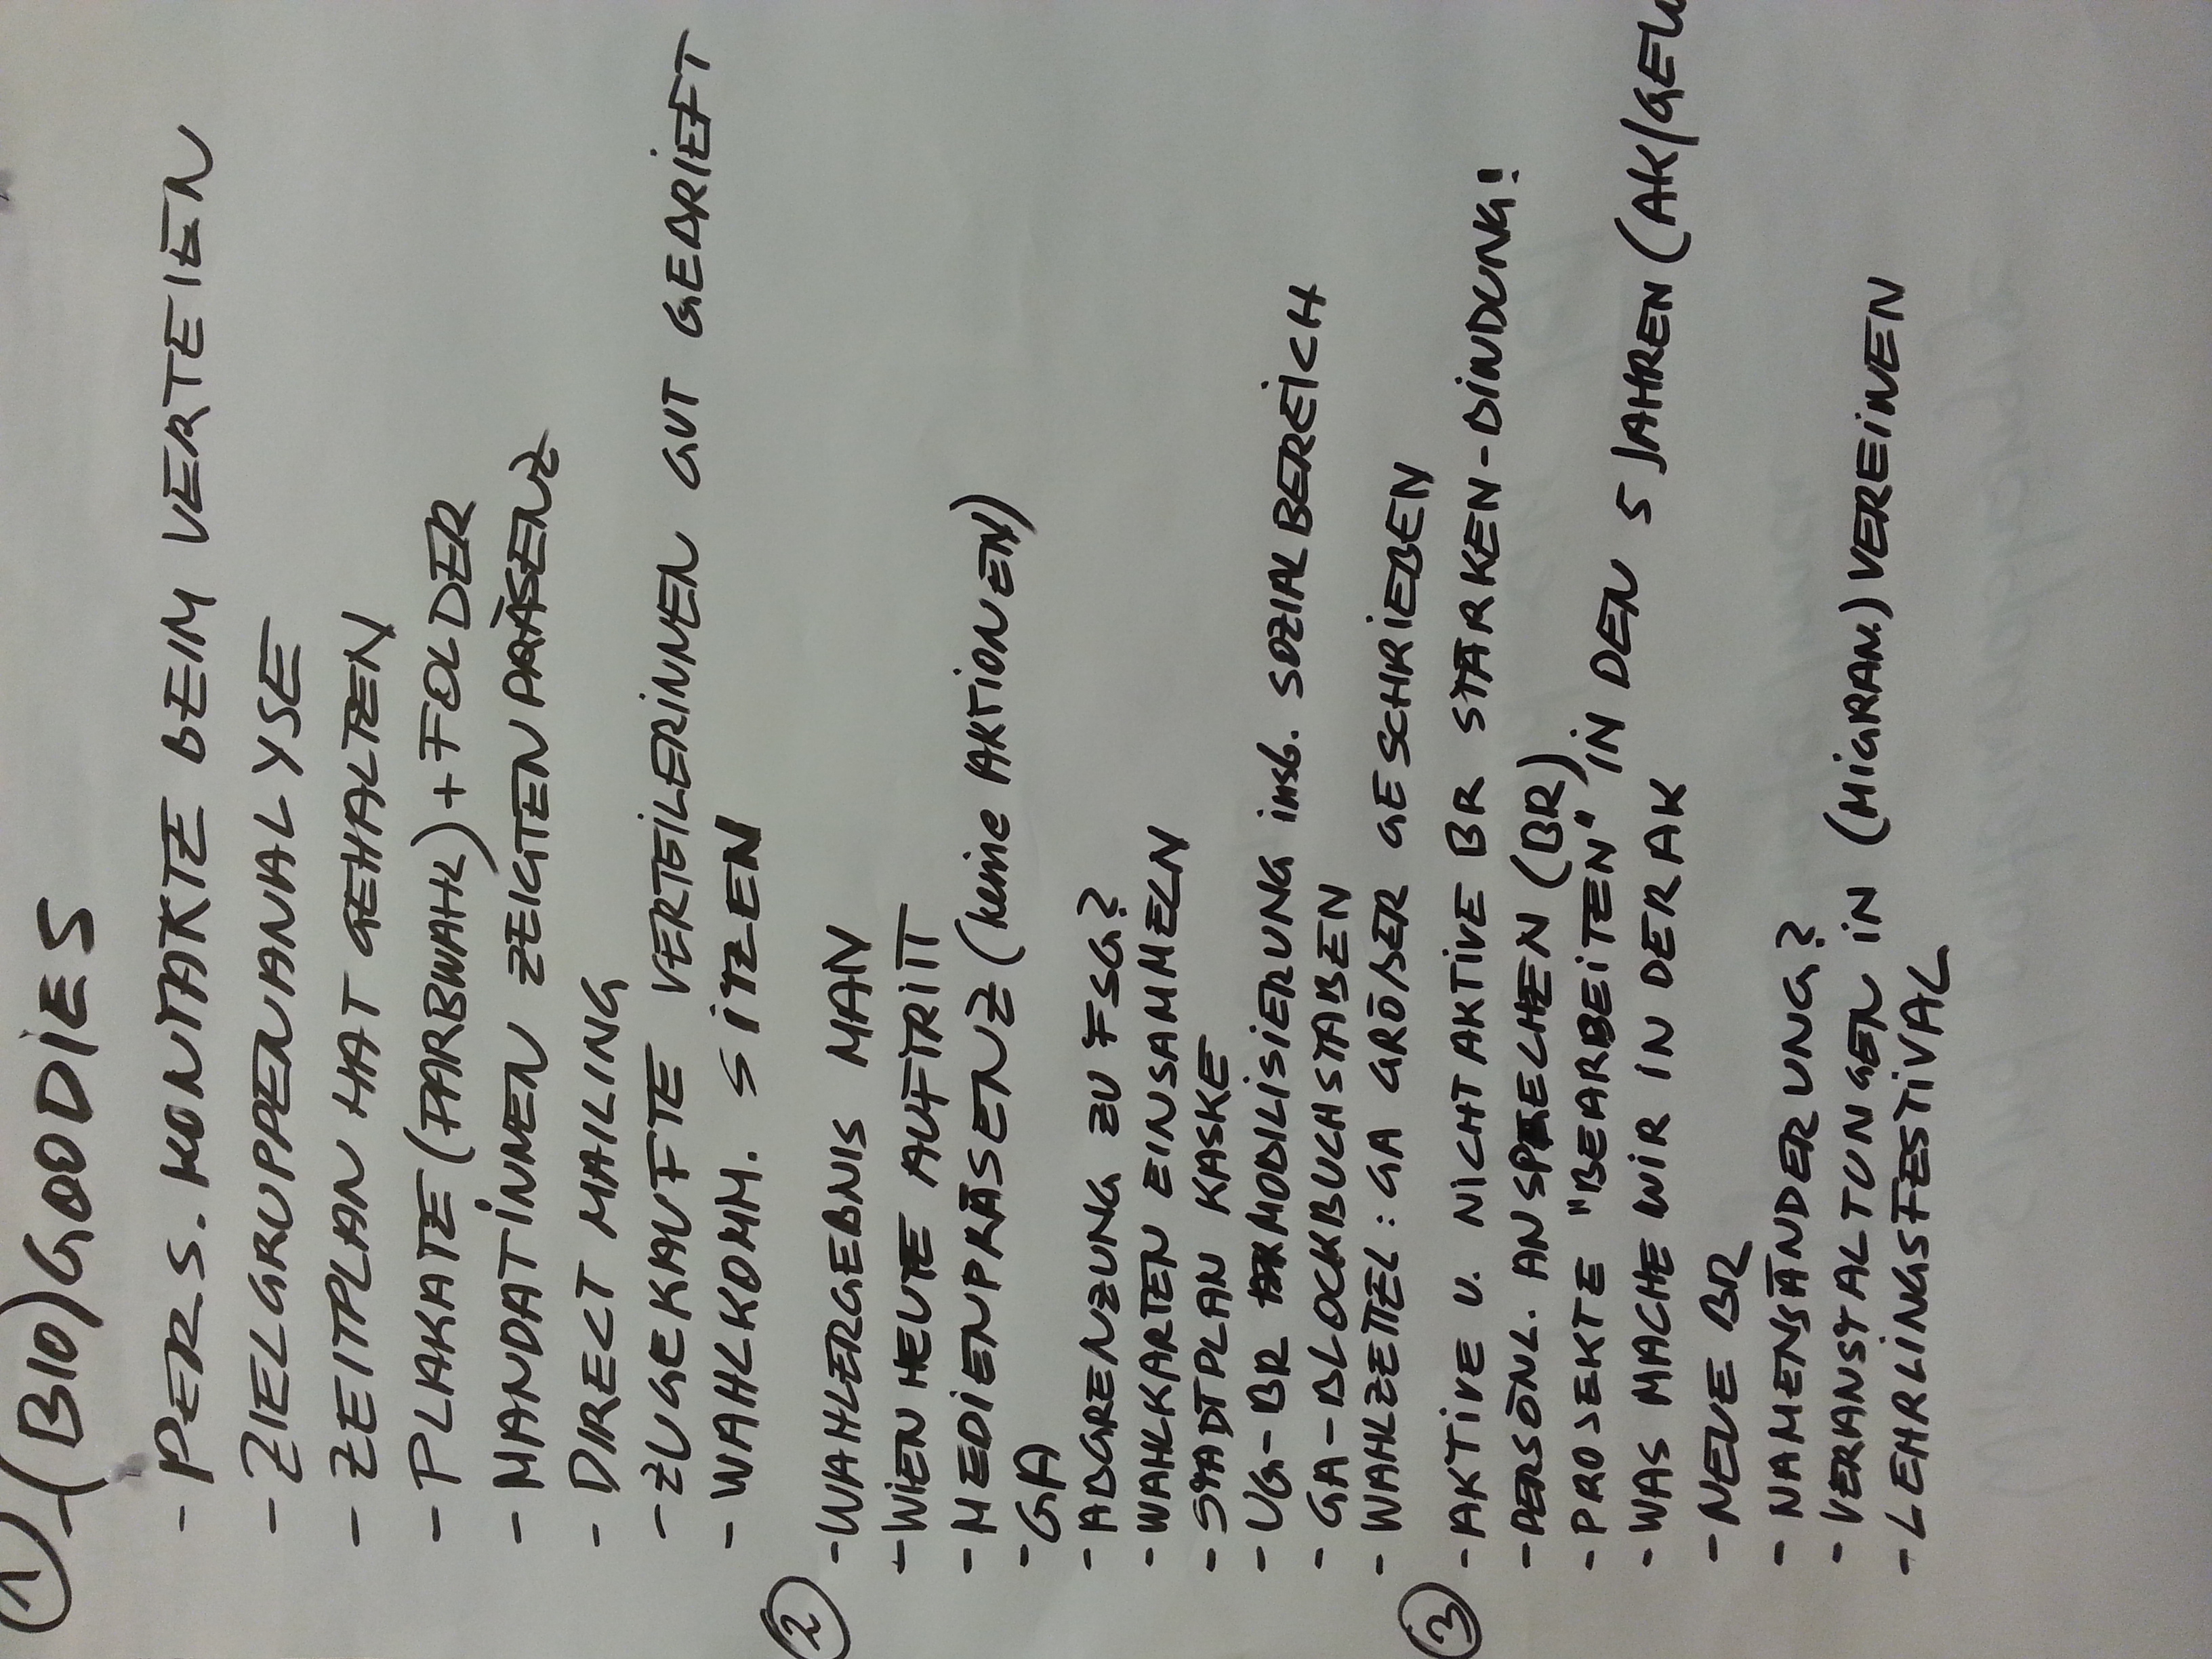 ① -(BIO)GOODIES
- PERS. KONTAKTE BEIM VERTEIEN
- ZIELGRUPPENANALYSE
- ZEITPLAN HAT GEHALTEN
- PLAKATE (FARBWAHL) + FOLDER
- MANDATINNEN ZEIGTEN PRÄSENZ
- DIRECT MAILING
- ZUGEKAUFTE VERTEILERINNEN GUT GEBRIEFT
- WAHLKOMM. SITZEN
② - WAHLERGEBNIS MAN
- WIEN HEUTE AUFTRITT
- MEDIENPRÄSENZ (keine AKTIONEN)
- GA
- ABGRENZUNG ZU FSG?
- WAHLKARTEN EINSAMMELN
- STADTPLAN KASKE
- UG-BR MOBILISIERUNG insb. SOZIALBEREICH
- GA-BLOCKBUCHSTABEN
- WAHLZETTEL: GA GRÖßER GESCHRIEBEN
③ - AKTIVE U. NICHT AKTIVE BR STÄRKEN-BINDUNG!
- PERSÖNL. ANSPRECHEN (BR)
- PROJEKTE "BEARBEITEN"
- WAS MACHE WIR IN DER AK IN DEN 5 JAHREN (AK/GEW
- NEUE BR
- NAMENSÄNDERUNG?
- VERANSTALTUNGEN IN (MIGRAN.) VEREINEN
- LEHRLINGSFESTIVAL